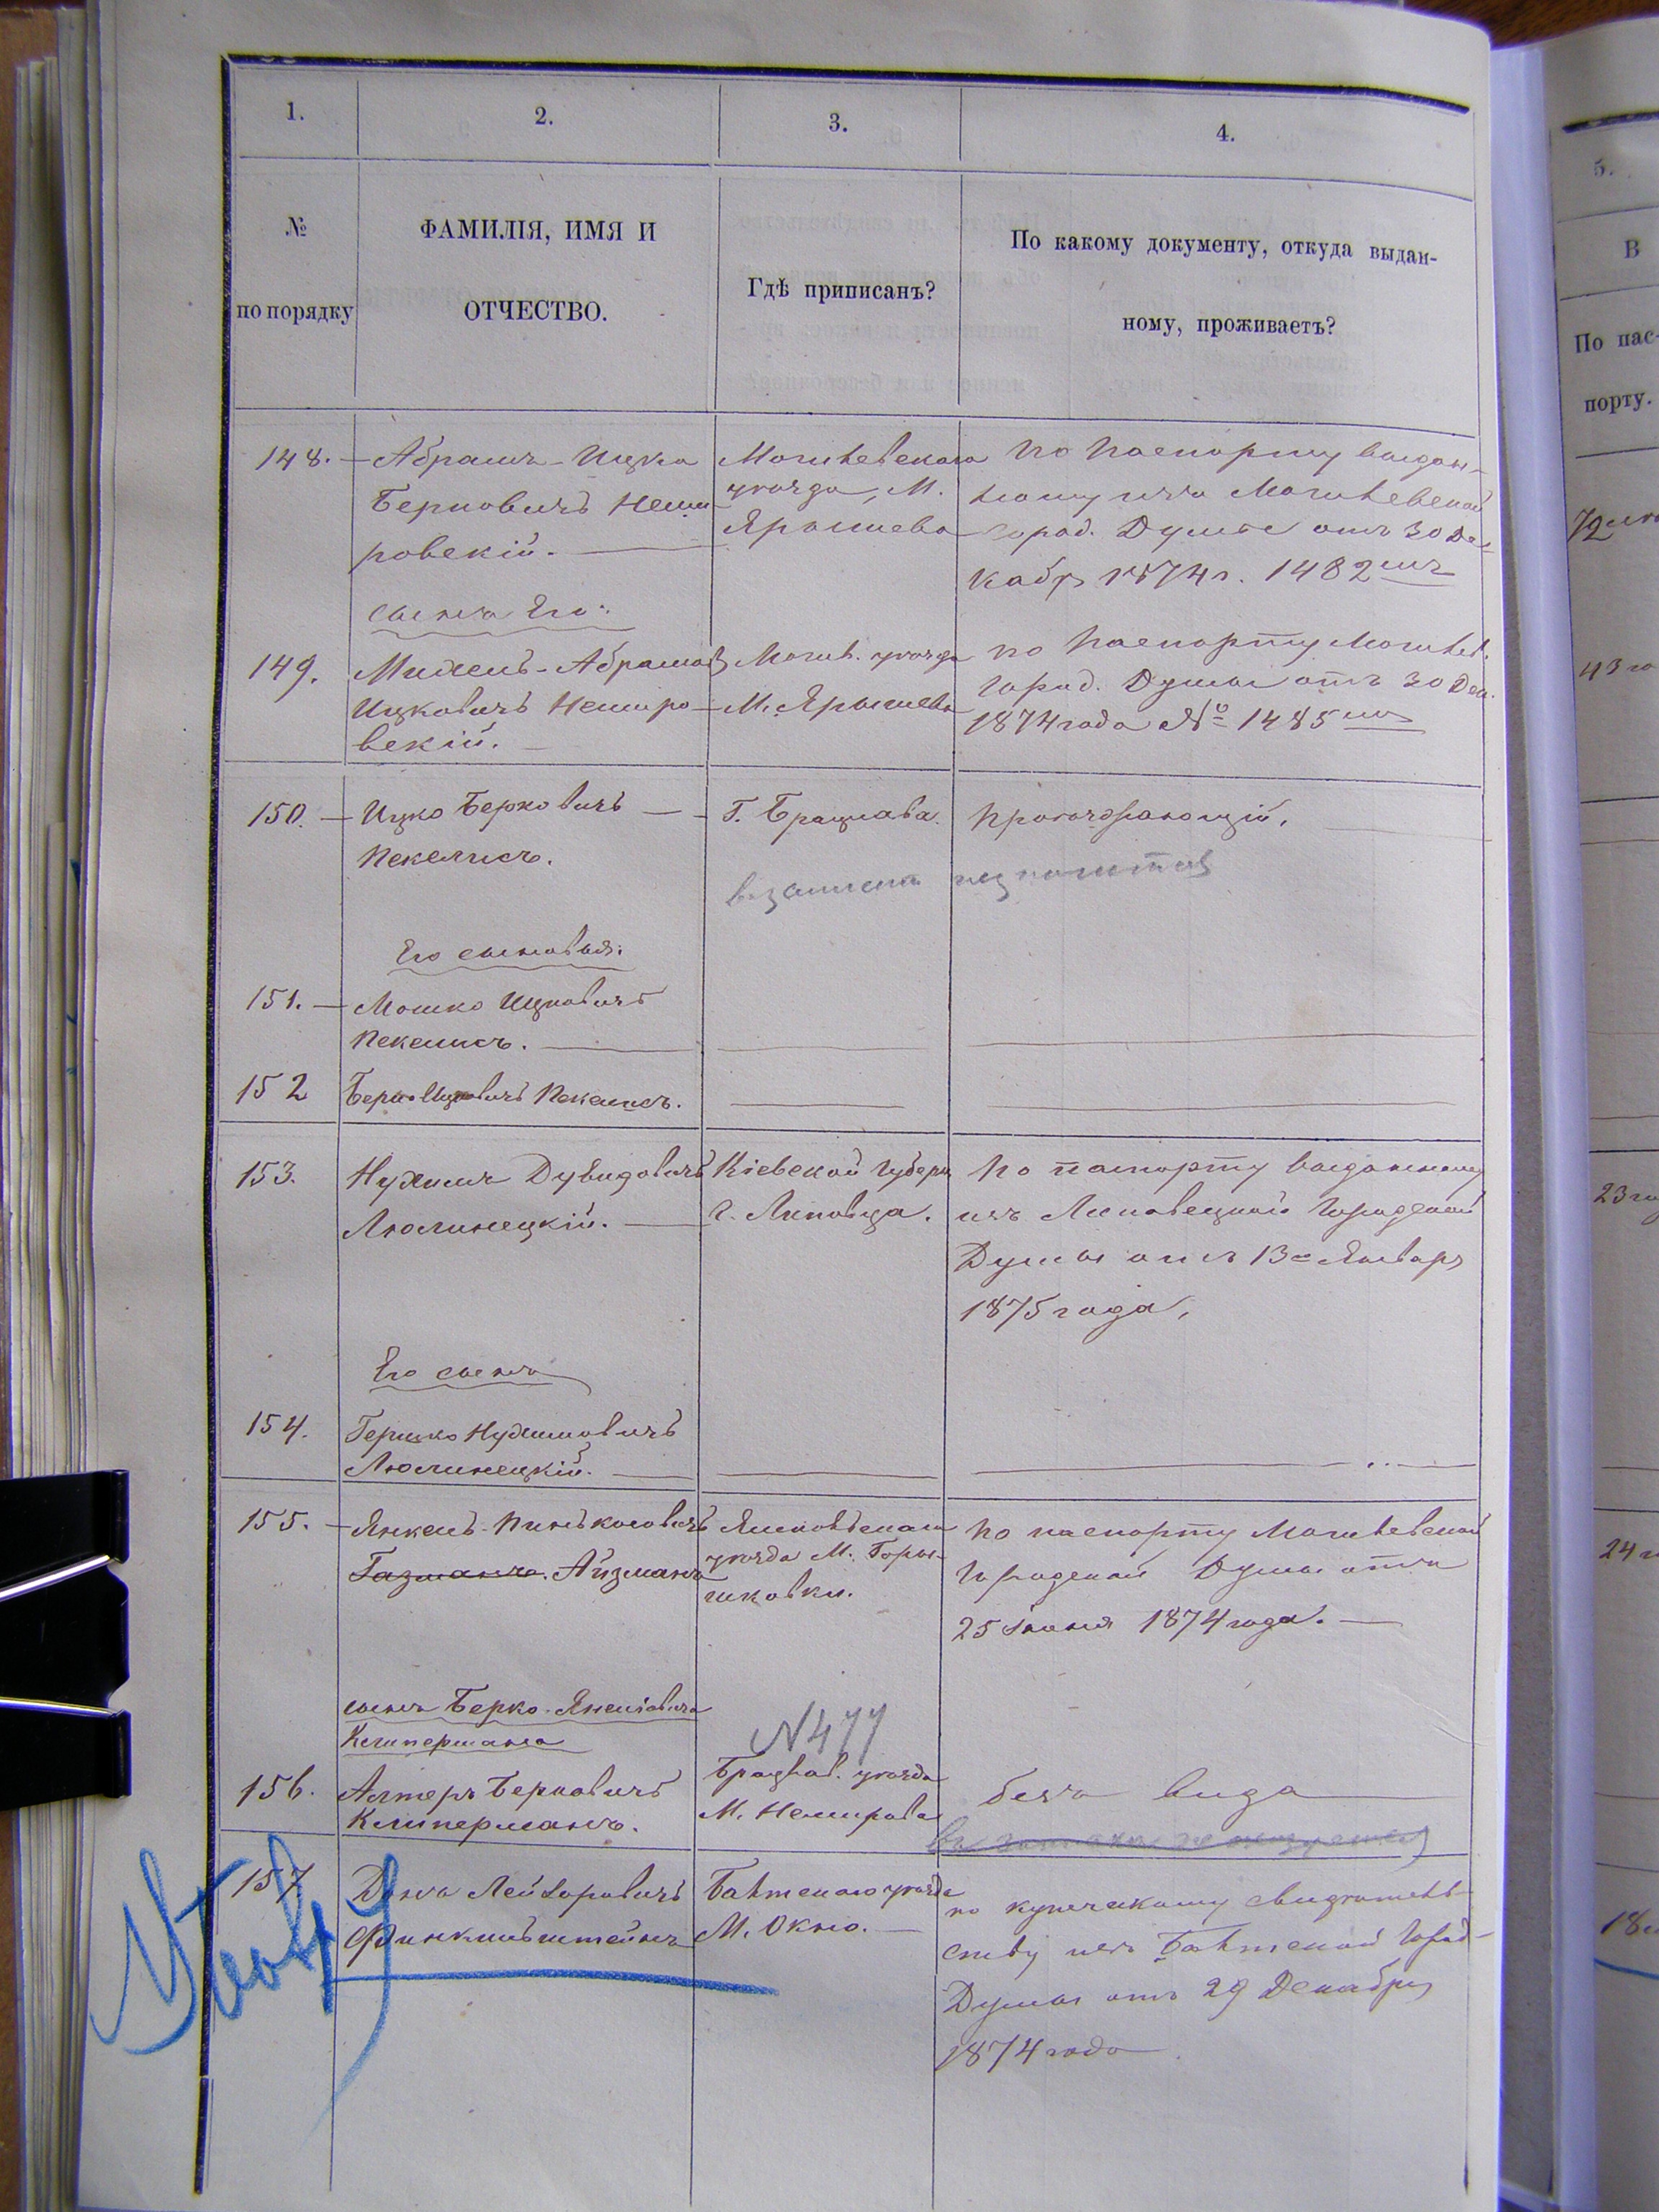 1.
2.
3.
4.
№
по порядку
ФАМИЛІЯ, ИМЯ И
ОТЧЕСТВО.
Гдѣ приписанъ?
По какому документу, откуда выдан-
ному, проживаетъ?
148.
Абрамъ-Ицко
Берковичъ Неми
ровскій.
Могилевскаго
уѣзда, М.
Ярышева
По паспорту выдан-
ному изъ Могилевской
Город. Думы отъ 30 Де-
кабр 1874 г. 1482
сынъ Его:
149.
Михель-Абрамов
Ицковичъ Немиро
вскій.
Могил. уѣзда
М. Ярышева
по паспорту Могилев.
город. Думы отъ 30 Дек.
1874 года № 1485
150.
Ицко Берковичъ
Пекелисъ.
Г. Брацлава.
Его сыновья:
151.
Мошко Ицковичъ
Пекелисъ.
152
Берко Ицковичъ Пекелисъ.
153.
Нухимъ Дувидовичъ
Люлинецкій.
Кіевской Губерн
г. Липовца.
По паспорту выданному
изъ Липовецкой Городской
Думы отъ 13 Январ
1875 года,
Его сынъ
154.
Гершко Нухимовичъ
Люлинецкій.
155.
Янкель-Пинькосовичъ
Газманъ. Айзманъ
уѣзда М. Горы-
шковки.
По паспорту Могилевской
Городской Думы отъ
25 Іюня 1874 года.
сынъ Берко-Янкеліовича
Клипермана
N477
156.
Алтеръ Берковичъ
Клиперманъ.
Брацлав. уѣзда
М. Немирова
безъ вида
157
Финкильштейнъ
Балтскаго уѣзда
М. Окно.
по купеческому свидѣтель-
ству изъ Балтской Город-
Думы отъ 29 Декабря
1874 года
5.
В
По пас-
порту.
72
43
23
24
18